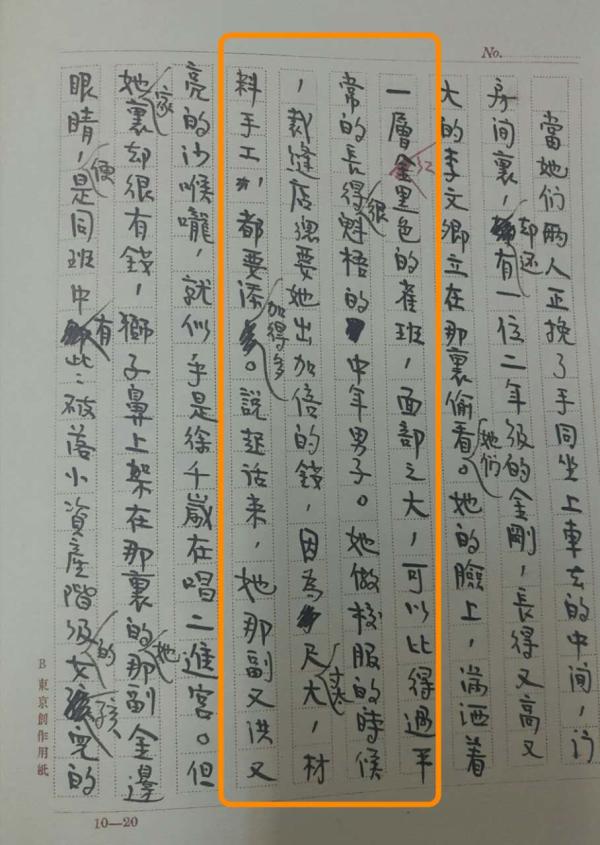 No.
當她们兩人正挽了手同坐上車去的中间，
房间裏，却还有一位二年级的金剛，長得又高又
大的李文卿立在那裏偷看她们。她的臉上，满洒着
一層红黑色的雀斑，面部之大，可以比得過平
常的長得很魁梧的中年男子。她做校服的時候
，裁縫店總要她出加倍的錢，因為尺寸大，材
料手工，都要添加得多。說起话来，她那副又洪又
亮的沙喉嚨，就似乎是徐千歲在唱二進宮。但
她家裏却很有錢，獅子鼻上架在那裏的她那副金邊
眼睛，便是同班中有此破落小資産階级的女孩兒的
B 東京創作用紙
10—20